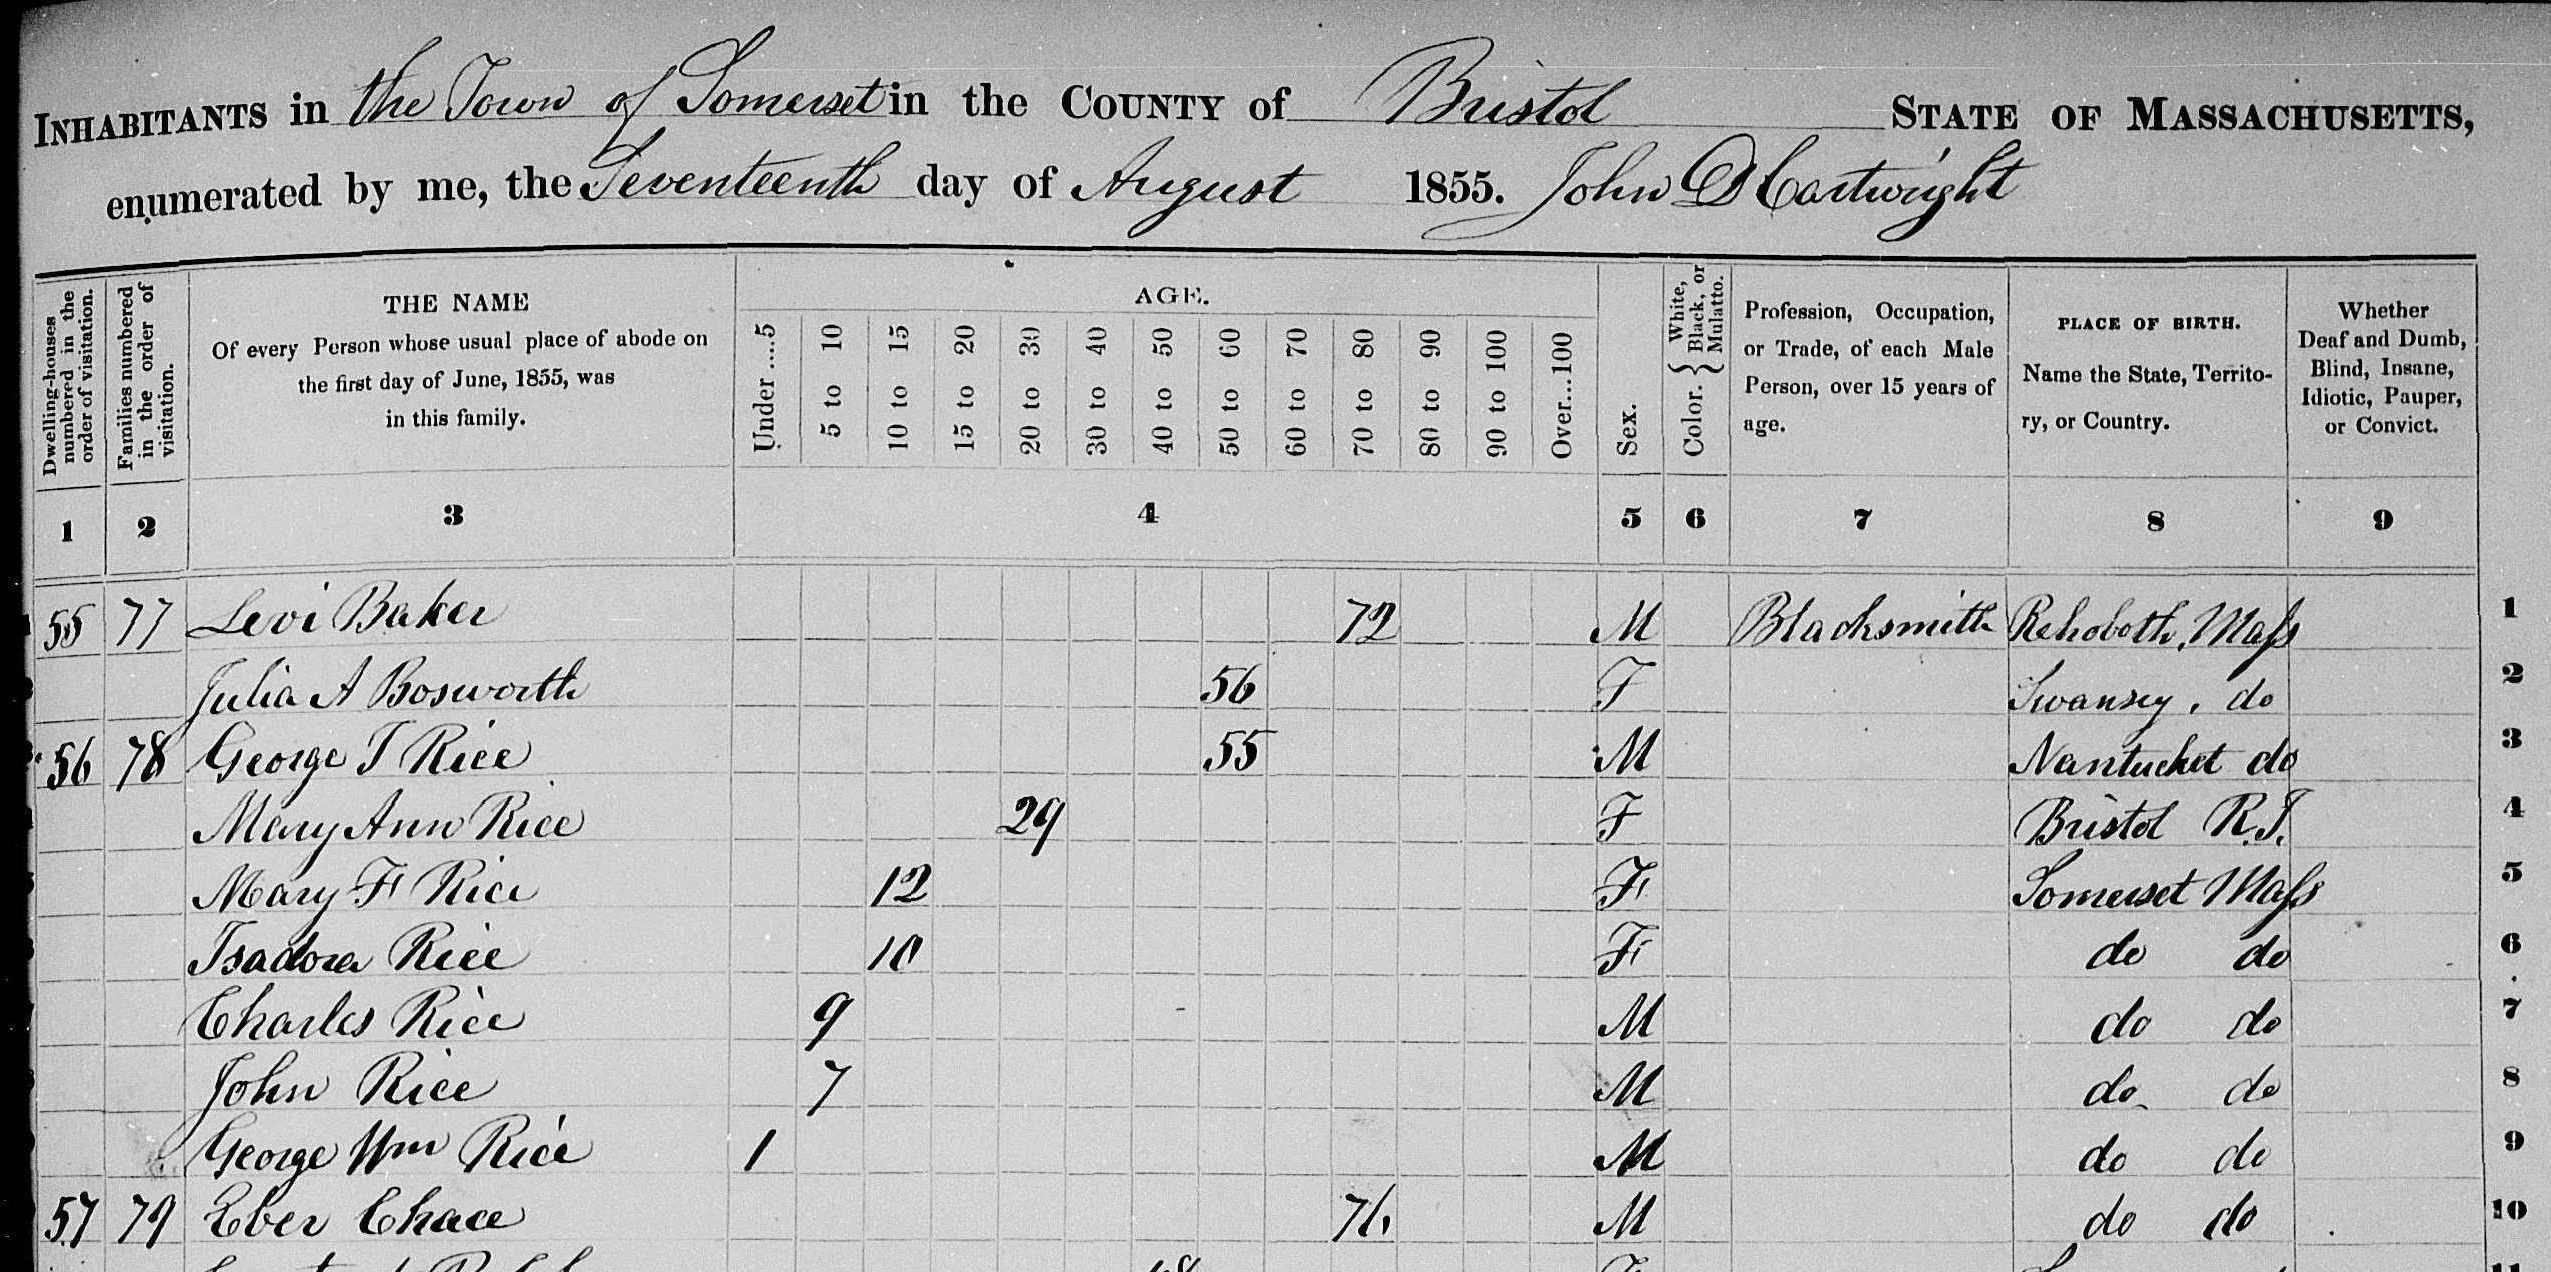 INHABITANTS in the Town of Somerset in the COUNTY of Bristol STATE OF MASSACHUSETTS,
enumerated by me, the Seventeenth day of August 1855. John D Cartwright
Dwelling-houses numbered in the order of visitation.
Families numbered in the order of visitation.
THE NAME
Of every Person whose usual place of abode on
the first day of June, 1855, was
in this family.
AGE.
Under....5
5 to 10
10 to 15
15 to 20
20 to 30
30 to 40
40 to 50
50 to 60
60 to 70
70 to 80
80 to 90
90 to 100
Over...100
Sex.
Color. { White, Black, or Mulatto.
Profession, Occupation,
or Trade, of each Male
Person, over 15 years of
age.
PLACE OF BIRTH.
Name the State, Territo-
ry, or Country.
Whether
Deaf and Dumb,
Blind, Insane,
Idiotic, Pauper,
or Convict.
1 2 3 4 5 6 7 8 9
55 77 Levi Baker 72 M Blacksmith Rehoboth, Mass 1
Julia A Bosworth 56 F Swansey, do 2
56 78 George T Rice 55 M Nantucket do 3
Mary Ann Rice 29 F Bristol R.I. 4
Mary F Rice 12 F Somerset Mass 5
Isadora Rice 10 F do do 6
Charles Rice 9 M do do 7
John Rice 7 M do do 8
George Wm Rice 1 M do do 9
57 79 Eber Chace 76 M do do 10